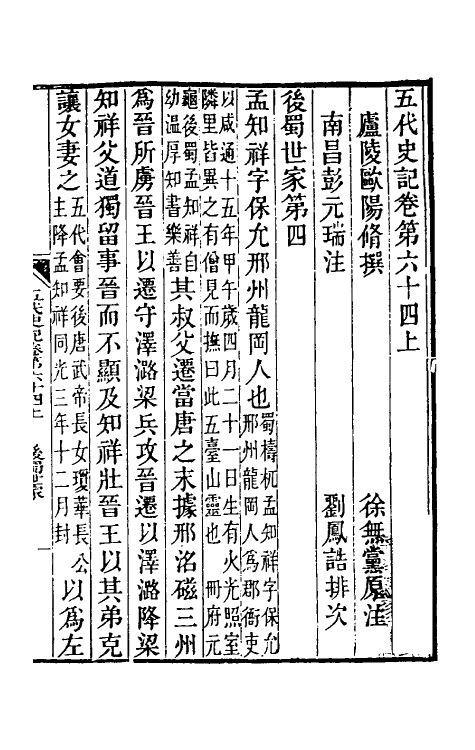 五代史記卷第六十四上
廬陵歐陽脩撰 徐無黨原注
南昌彭元瑞注 劉鳳誥排次
後蜀世家第四
孟知祥字保允邢州龍岡人也蜀檮杌孟知祥字保允
邢州龍岡人爲郡衙吏
以咸通十五年甲午歲四月二十一日生有火光照室
隣里皆異之有僧見而撫曰此五臺山靈也 冊府元
龜後蜀孟知祥自
幼温厚知書樂善其叔父遷當唐之末據邢洺磁三州
爲晉所虜晉王以遷守澤潞梁兵攻晉遷以澤潞降梁
知祥父道獨留事晉而不顯及知祥壯晉王以其弟克
讓女妻之五代會要後唐武帝長女瓊華長公
主降孟知祥同光三年十二月封以爲左
五代史記卷第六十四上 後蜀世家 一